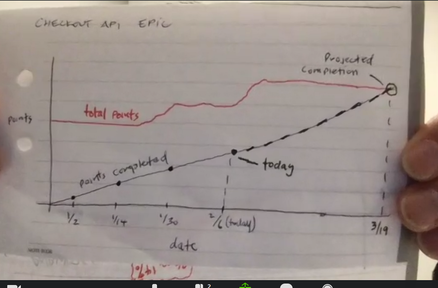 CHECKOUT API EPIC
Projected
Completion
points
total points
points completed
today
1/2
1/14
1/30
2/6 (today)
3/19
date